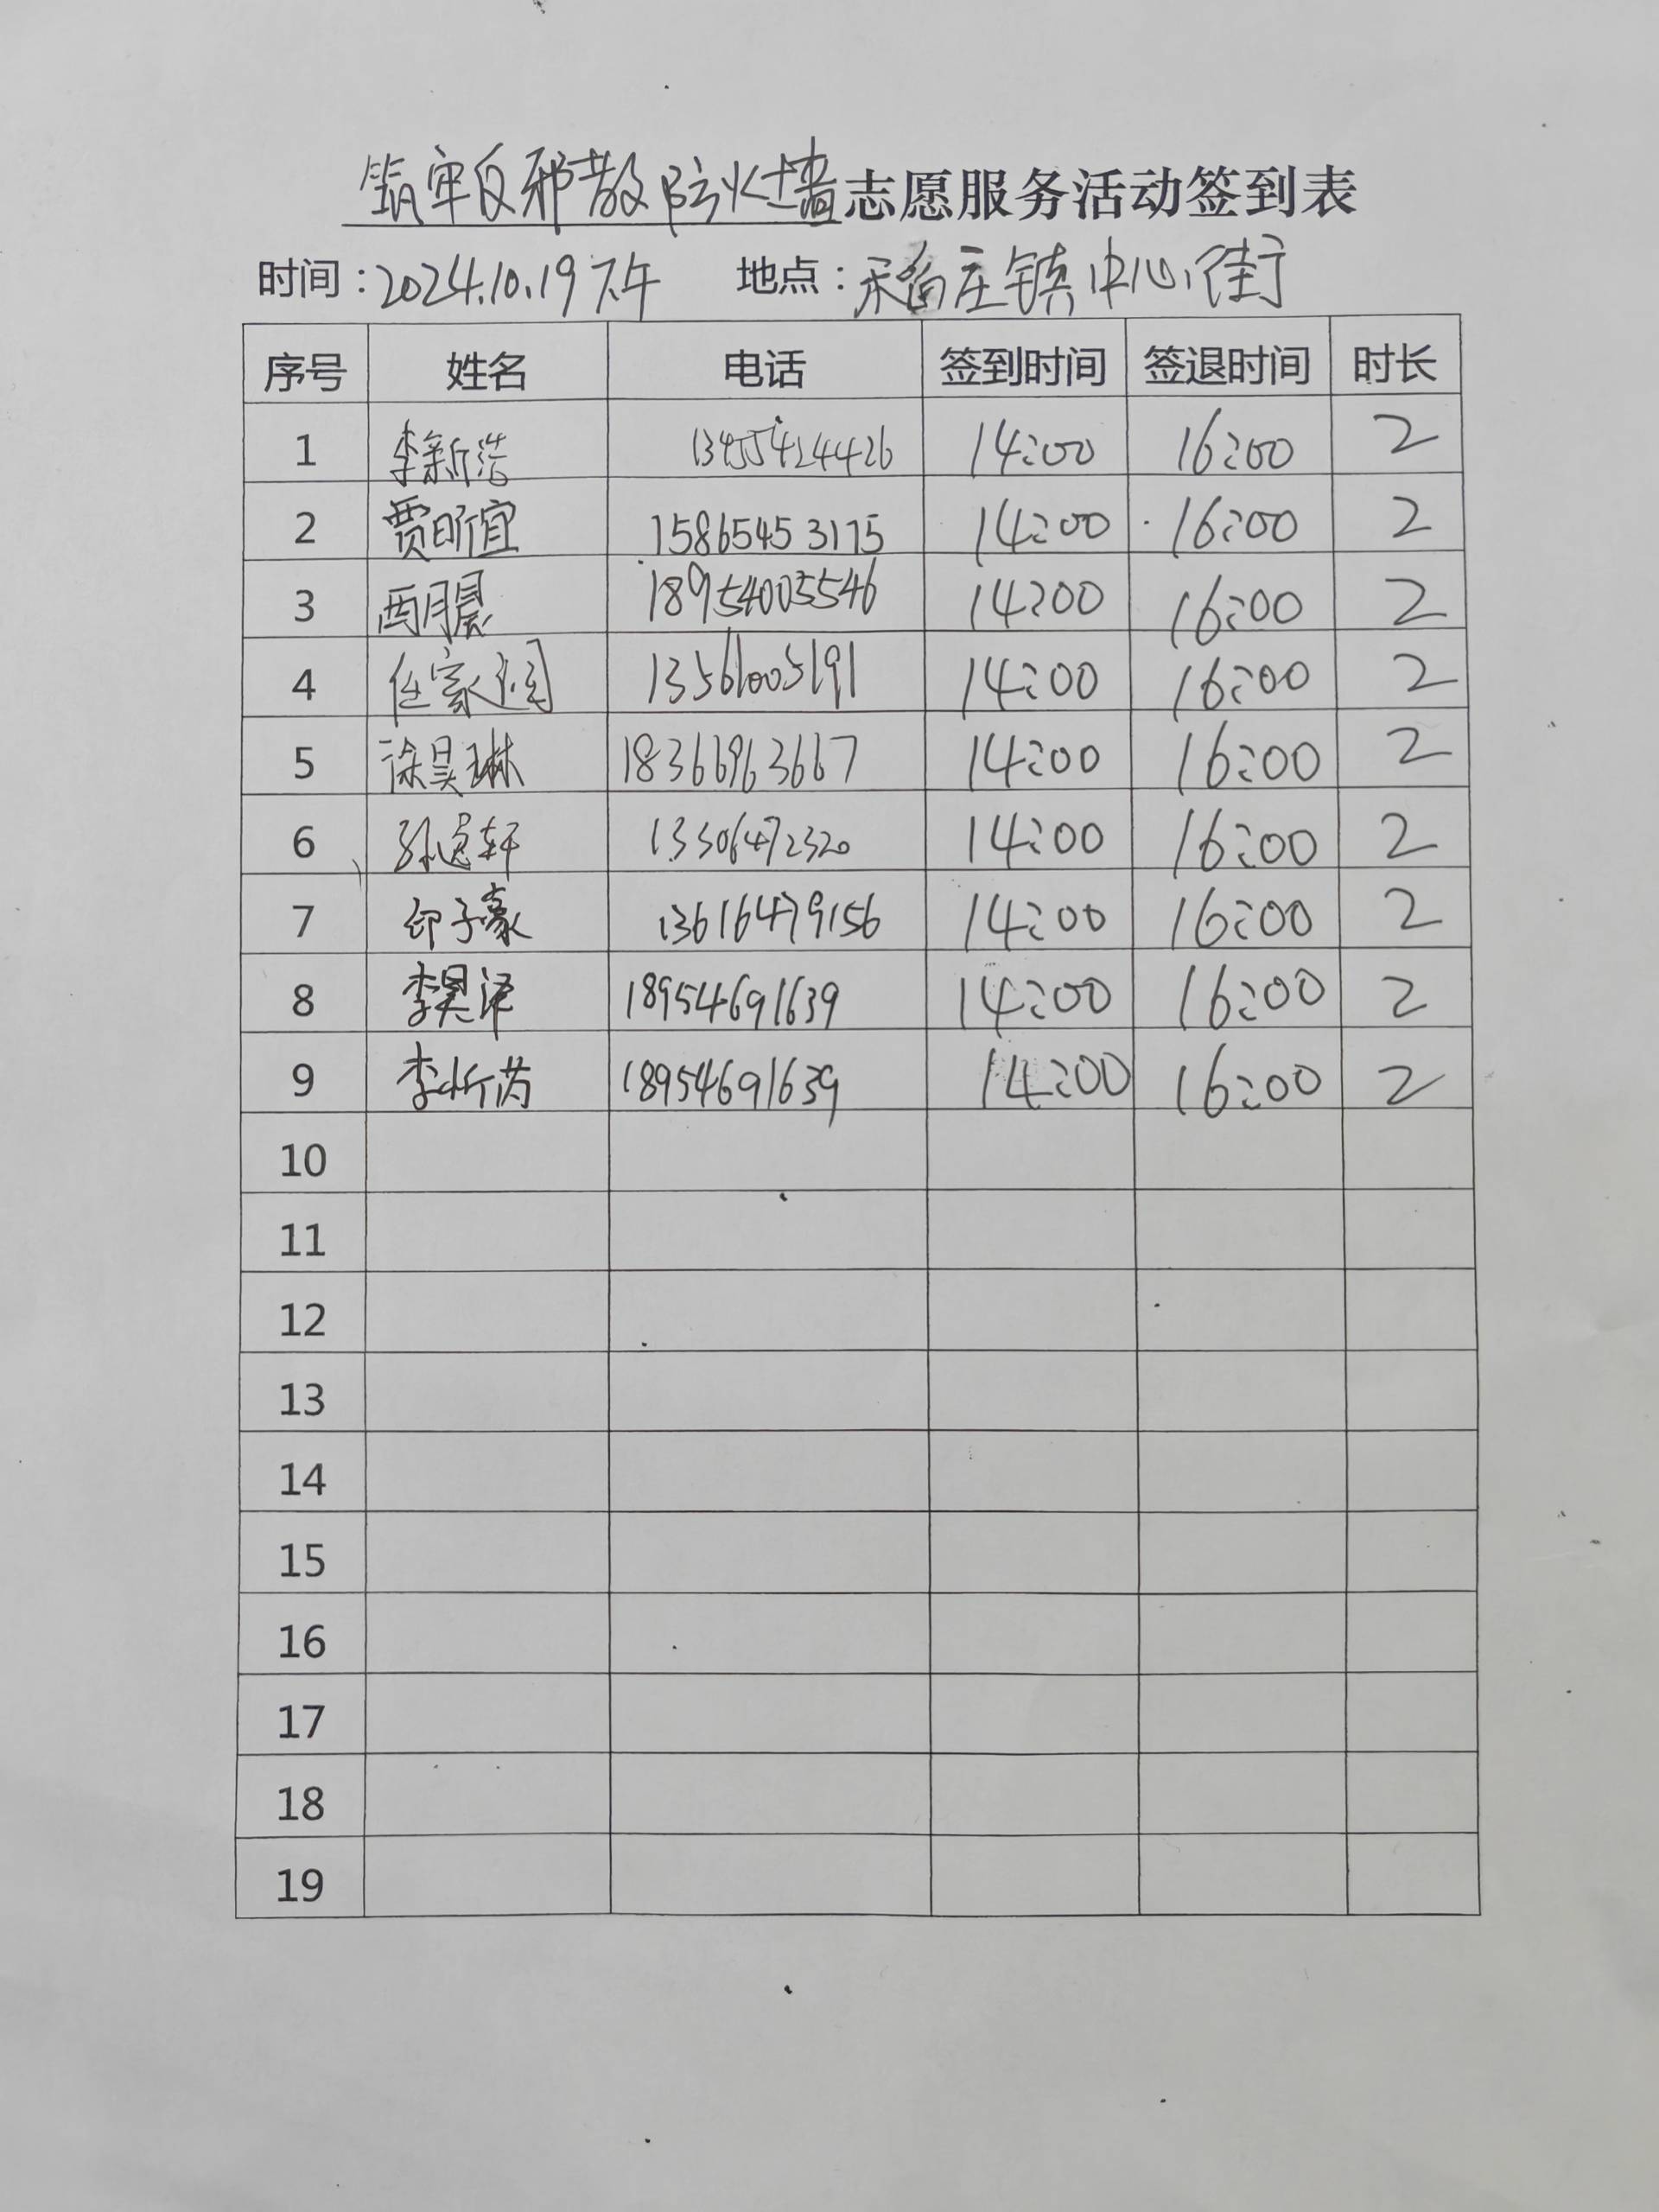 筑牢反邪教防火墙志愿服务活动签到表
时间：2024.10.19下午 地点：稻庄镇中心街
序号 姓名 电话 签到时间 签退时间 时长
1 李新浩 13455424426 14:00 16:00 2
2 贾昕宜 15865453175 14:00 16:00 2
3 西月晨 18954005546 14:00 16:00 2
4 任家 13561005191 14:00 16:00 2
5 徐昊琳 18366963667 14:00 16:00 2
6 孙逸轩 13306472320 14:00 16:00 2
7 子豪 13616479156 14:00 16:00 2
8 李昊泽 18954691639 14:00 16:00 2
9 李忻芮 18954691639 14:00 16:00 2
10
11
12
13
14
15
16
17
18
19